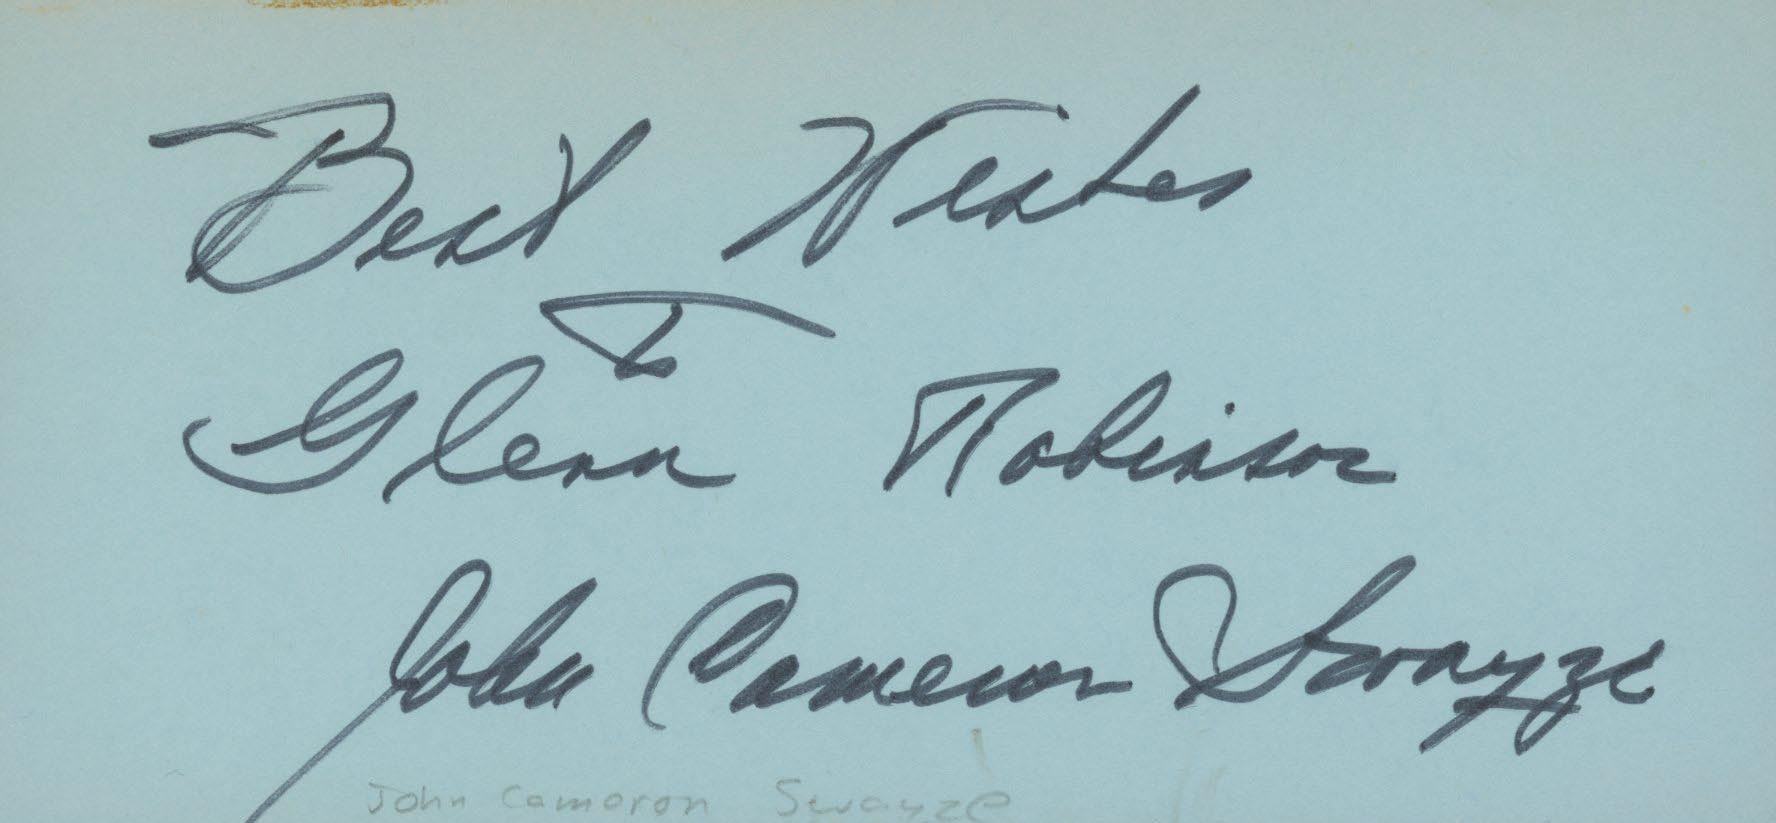 Best Wishes
to
Glenn Robinson
John Cameron Swayze
John Cameron Swayze